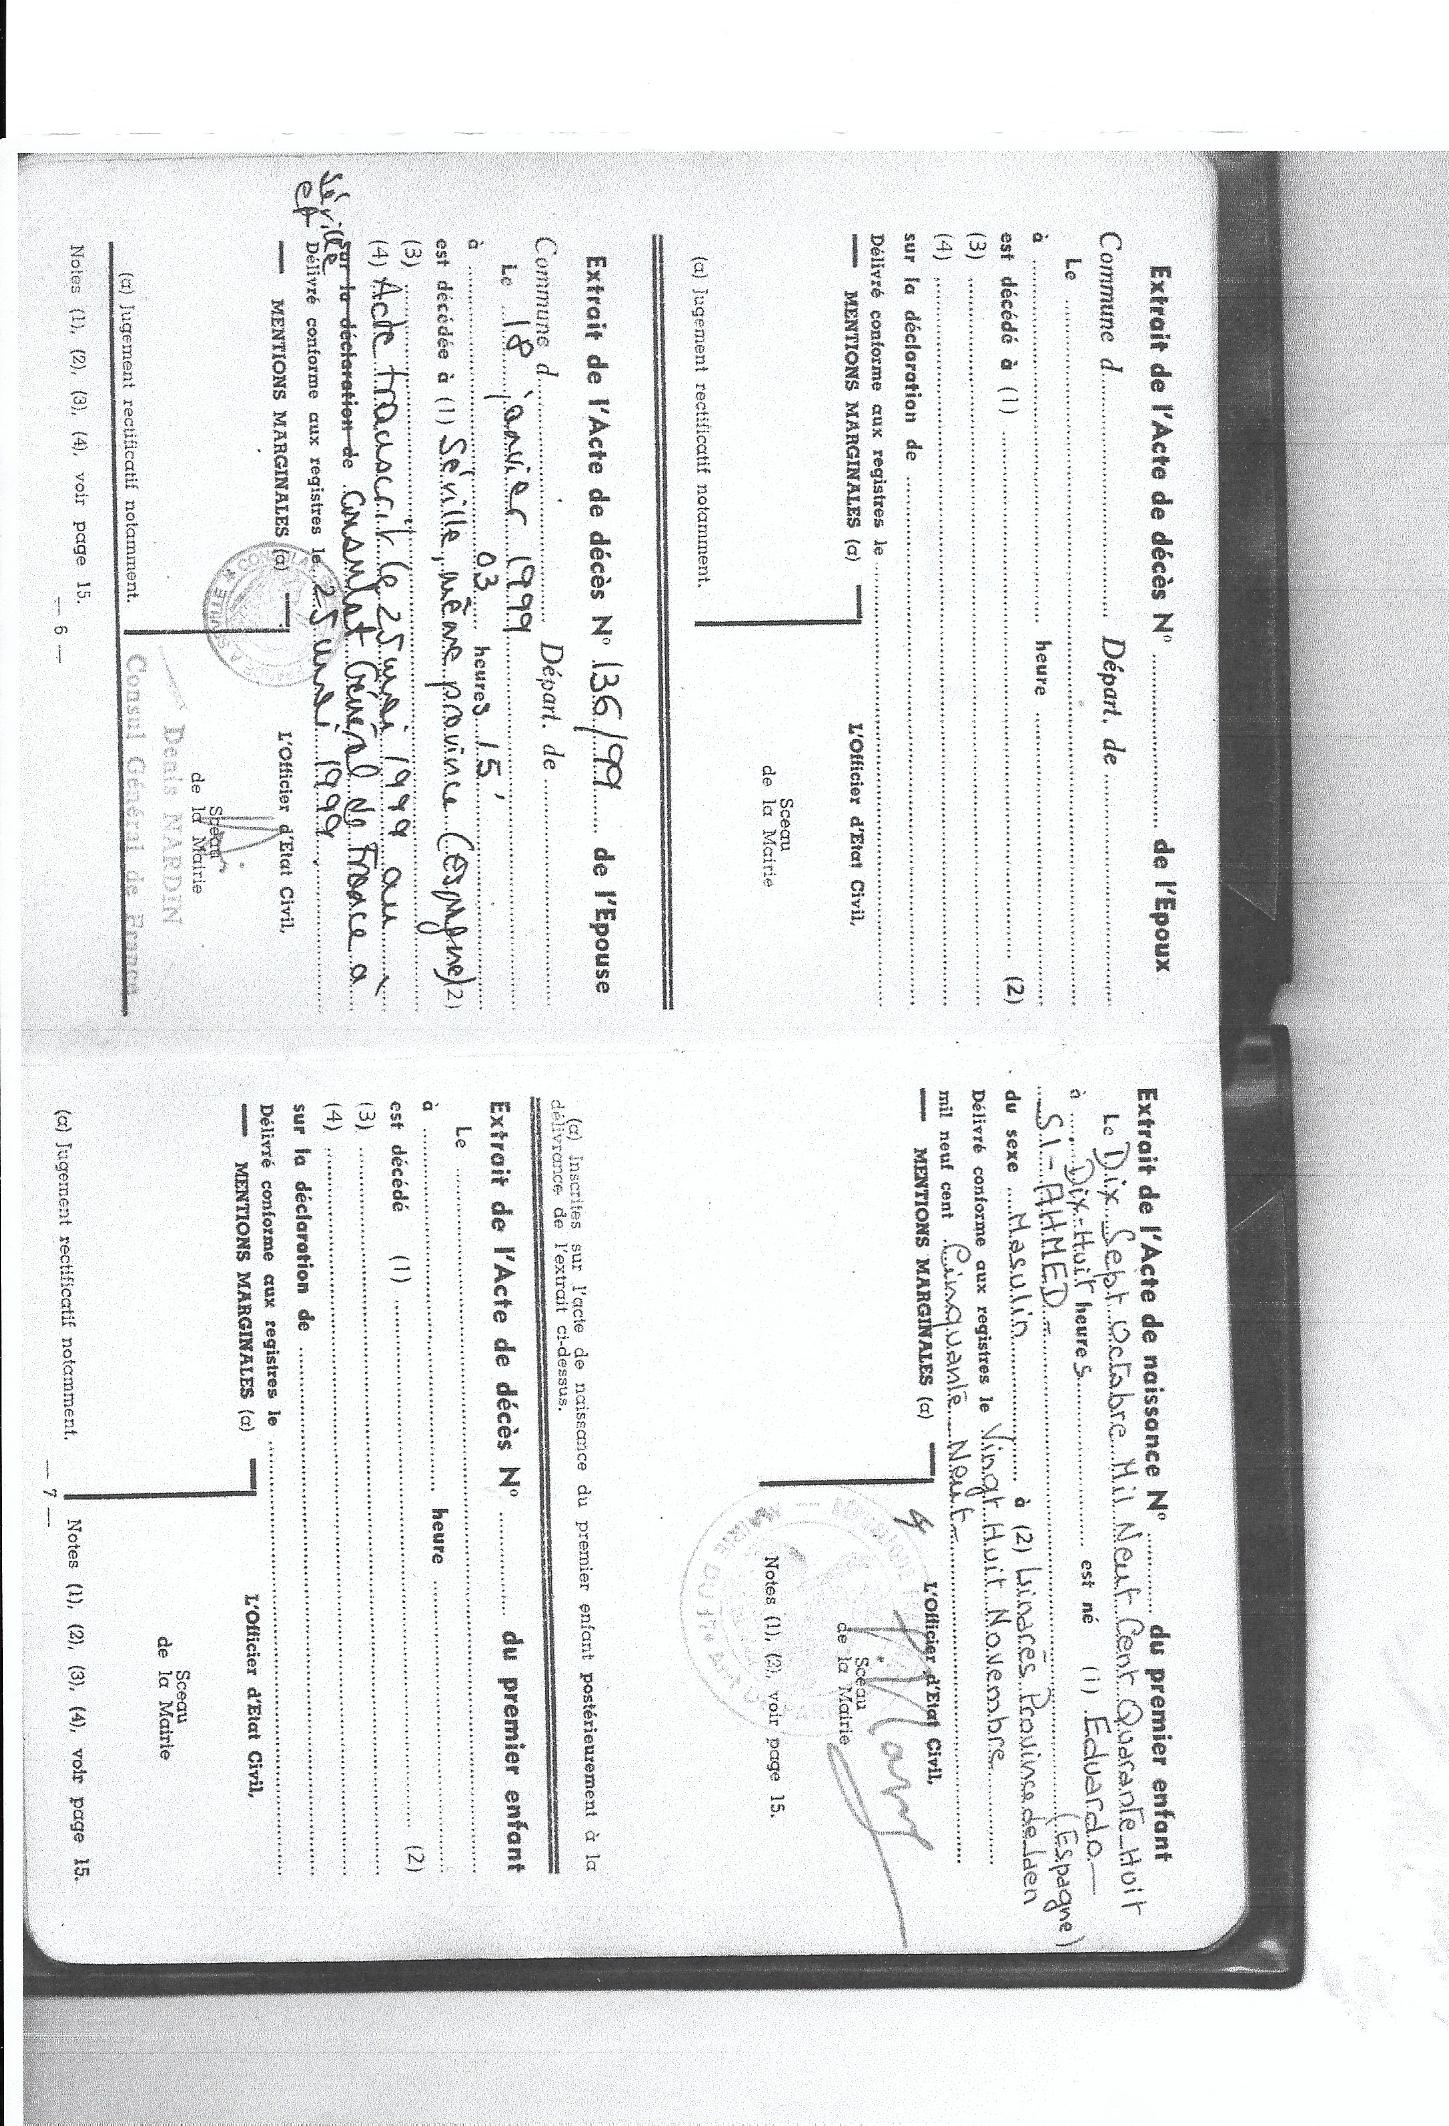 Extrait de l'Acte de décès Nº ........ de l'Epoux
Commune d........ Départ. de ........
Le ........
à ........ heure ........
est décédé à (1) ........ (2)
(3) ........
(4) ........
sur la déclaration de ........
Délivré conforme aux registres le ........
MENTIONS MARGINALES (a)
L'Officier d'Etat Civil,
Sceau
de la Mairie
(a) Jugement rectificatif notamment.
Extrait de l'Acte de décès Nº 136/99 de l'Epouse
Commune d........ Départ. de ........
Le 18 janvier 1999
à ........ 03 heures 15'
est décédée à (1) Séville, même province (Espagne) (2)
(3) ........
(4) Acte transcrit le 25 mai 1999 au
sur la déclaration de Consulat Général de France à
Séville
Délivré conforme aux registres le 25 mai 1999
MENTIONS MARGINALES (a)
L'Officier d'Etat Civil,
Sceau
de la Mairie
Denis NARDIN
Consul Général de France
(a) Jugement rectificatif notamment.
Notes (1), (2), (3), (4), voir page 15.
— 6 —
Extrait de l'Acte de naissance Nº ........ du premier enfant
Le Dix Sept Octobre Mil Neuf Cent Quarante Huit
à Dix-Huit heures ........ est né (1) Eduardo
SI-AHMED
(Espagne)
du sexe Masulin à (2) Linarès Province de Jaen
Délivré conforme aux registres le Vingt Huit Novembre
mil neuf cent Cinquante Neuf
MENTIONS MARGINALES (a)
L'Officier d'Etat Civil,
Sceau
de la Mairie
MAIRIE DU
Notes (1), (2), voir page 15.
(a) Inscrites sur l'acte de naissance du premier enfant postérieurement à la
délivrance de l'extrait ci-dessus.
Extrait de l'Acte de décès Nº ........ du premier enfant
Le ........
à ........ heure ........
est décédé (1) ........ (2)
(3) ........
(4) ........
sur la déclaration de ........
Délivré conforme aux registres le ........
MENTIONS MARGINALES (a)
L'Officier d'Etat Civil,
Sceau
de la Mairie
(a) Jugement rectificatif notamment.
Notes (1), (2), (3), (4), voir page 15.
— 7 —